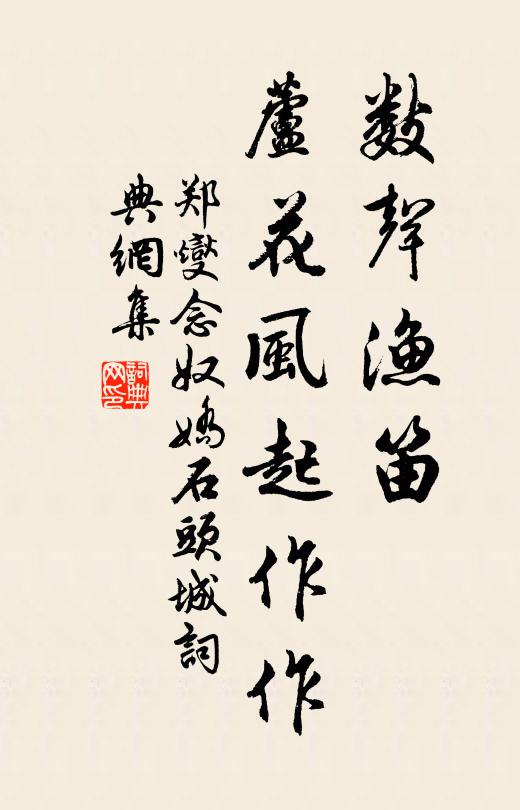 數聲漁笛
蘆花風起作作
郑燮念奴嬌石頭城詞
典網集
詞典
网印